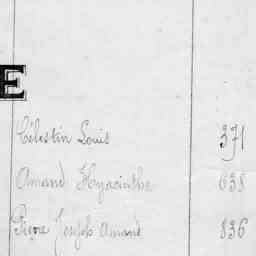 E
Célestin Louis 371
Amand Hyacinthe 638
Pierre Joseph Amand 836